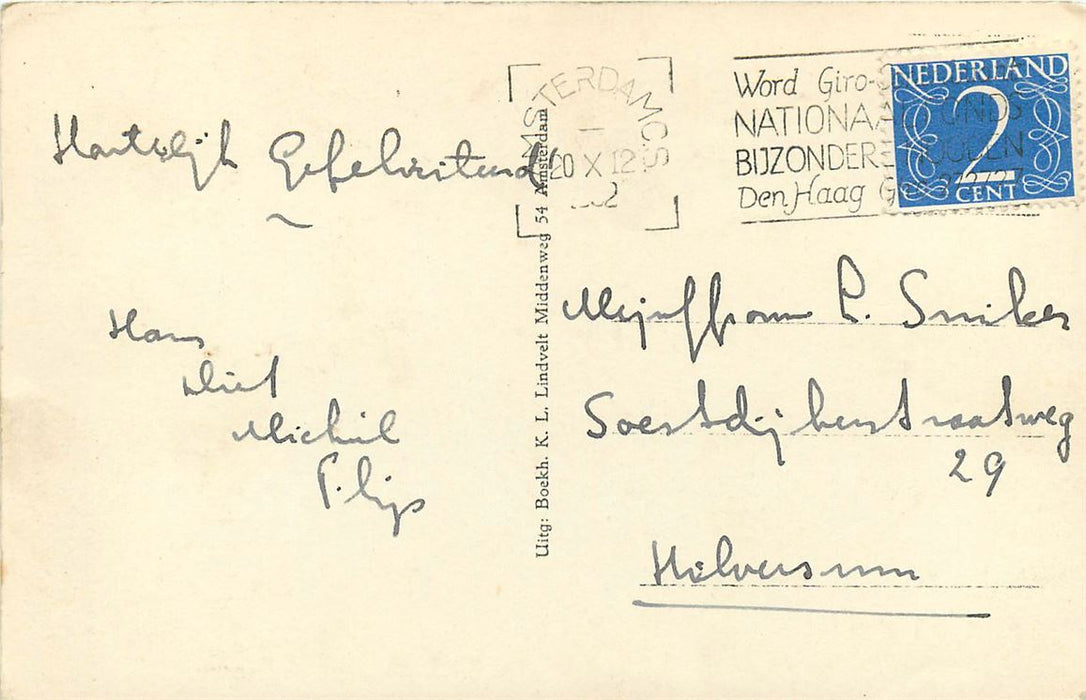 Hartelijk Gefeliciteerd!
Hans
Diet
Michiel
Flip
Uitg: Boekh. K. L. Lindvelt Middenweg 54 Amsterdam
AMSTERDAM C.S.
20 X 12
Word Giro-
NATIONAAL FONDS
BIJZONDERE NOODEN
Den Haag
NEDERLAND
2
CENT
Mejuffrouw P. Smiker
Soestdijkerstraatweg
29
Hilversum